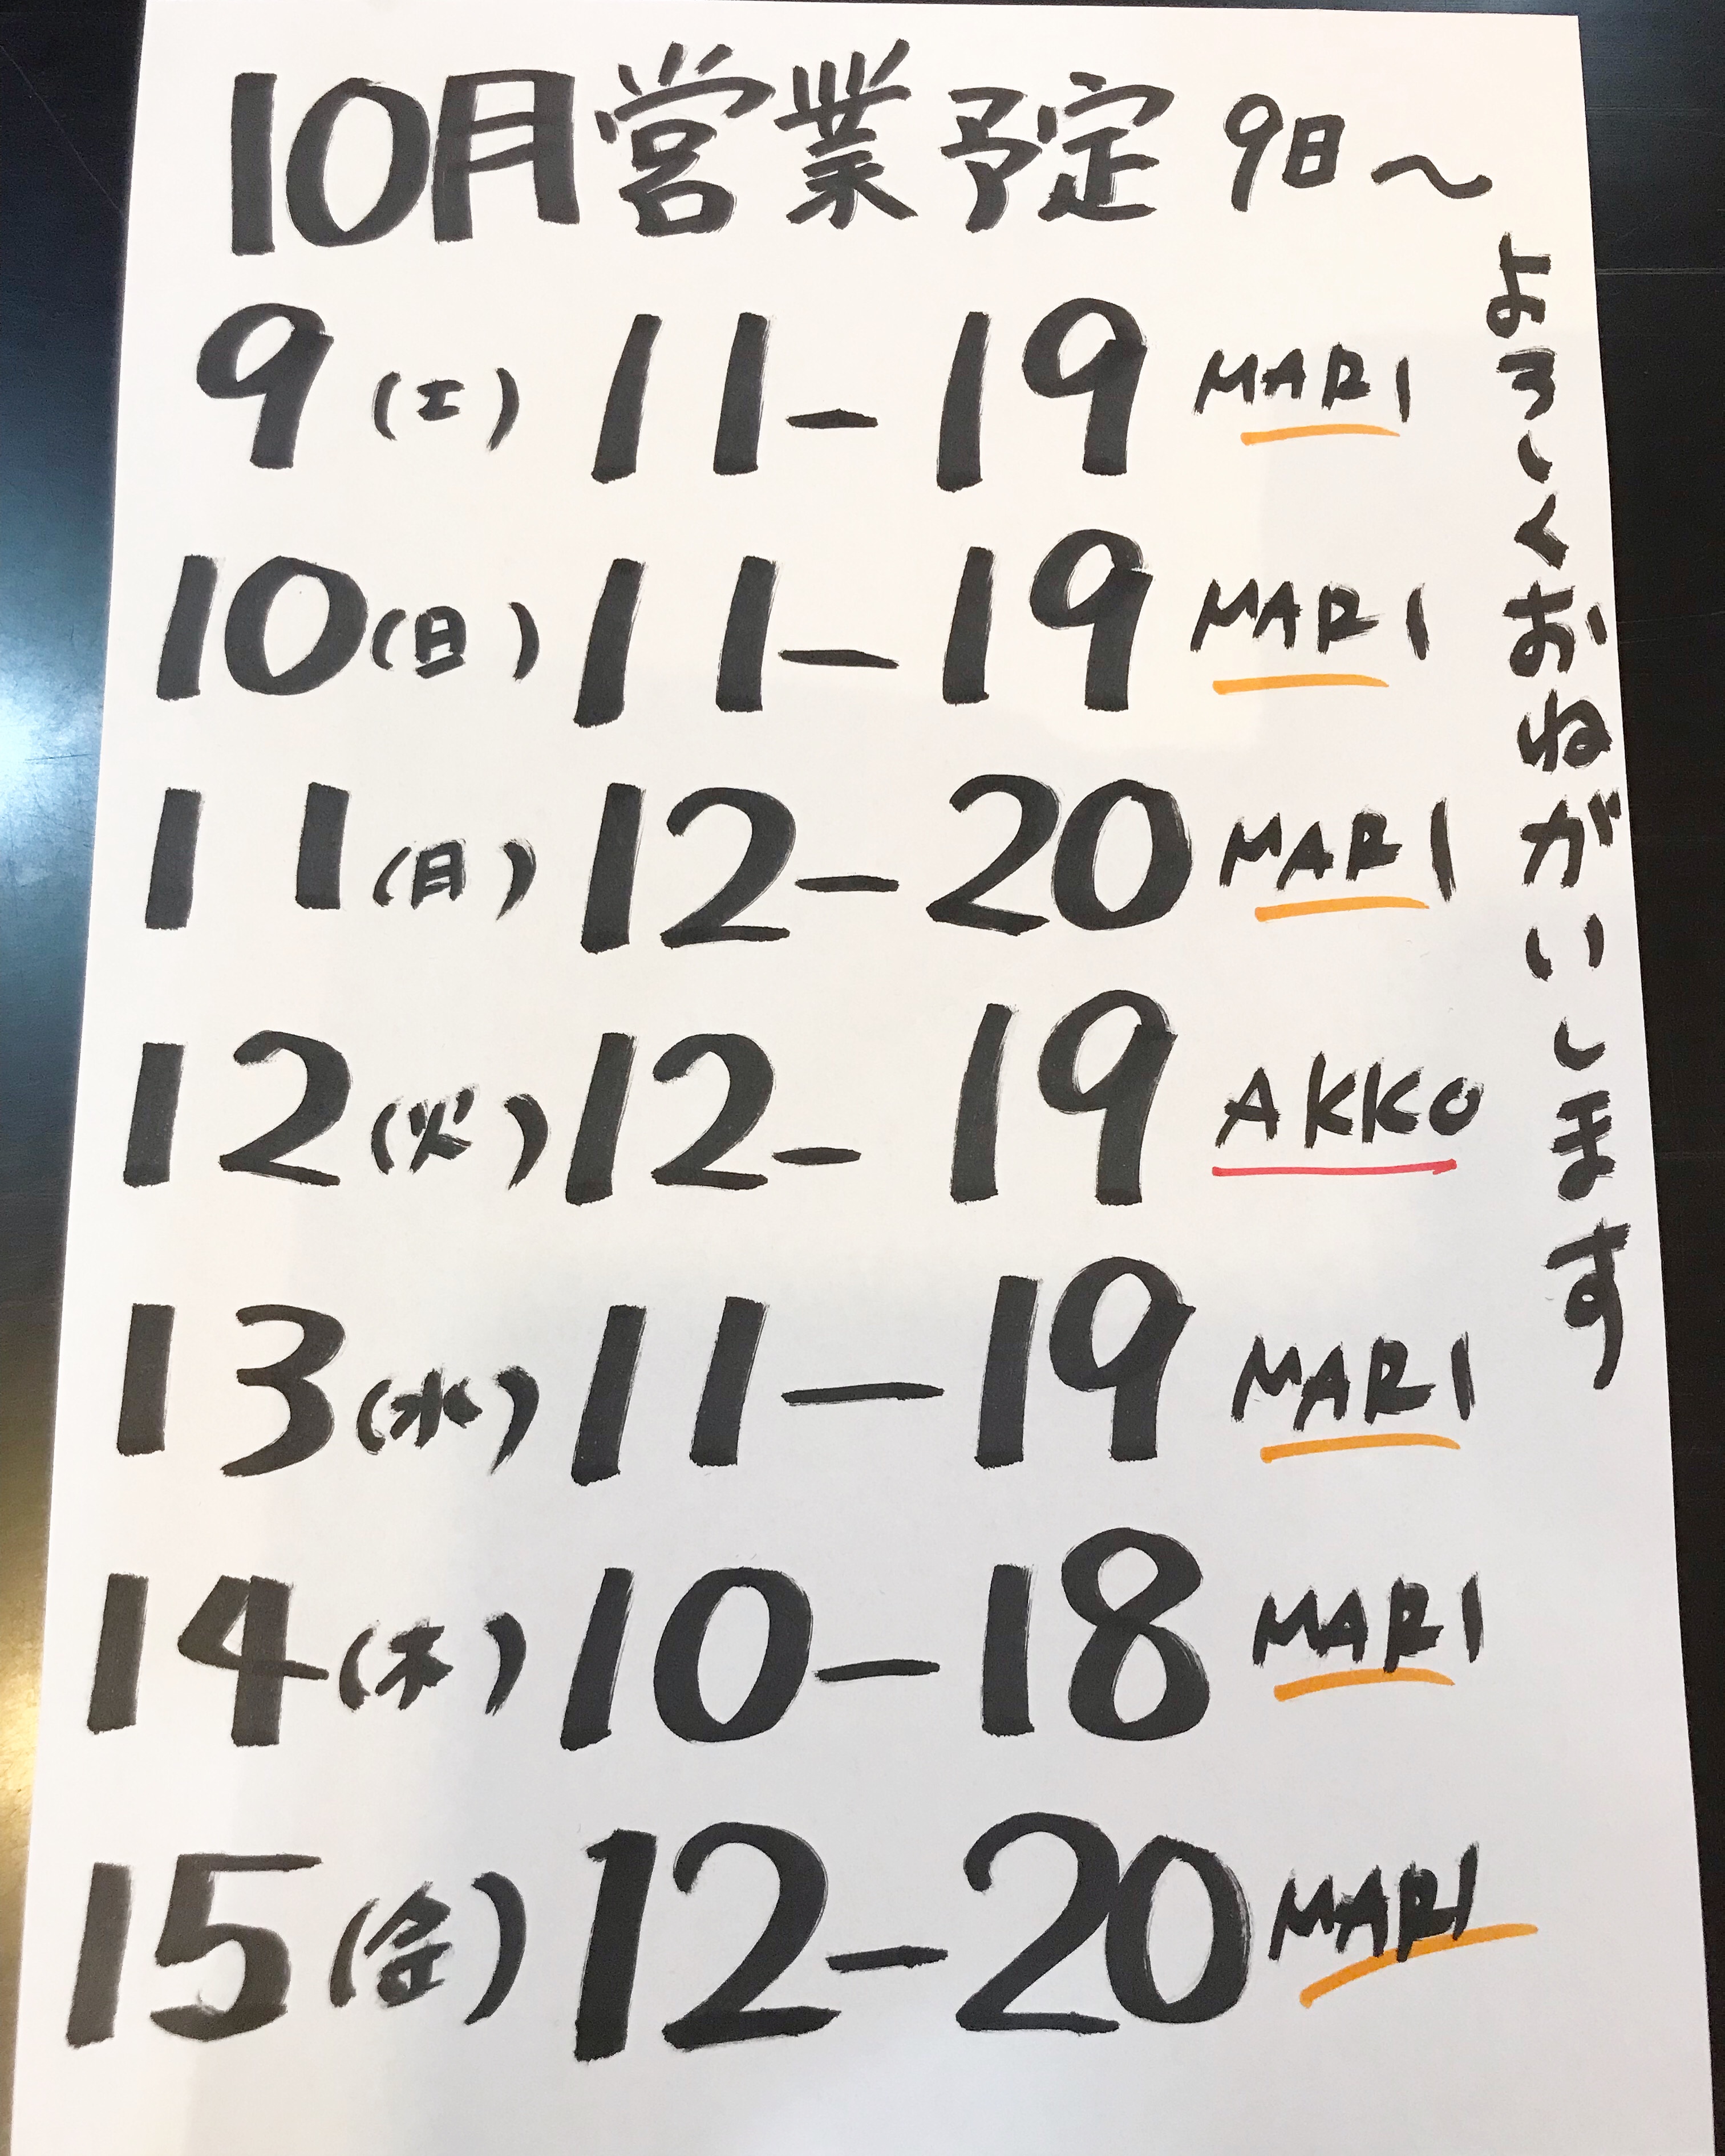 10月営業予定 9日〜
9(土) 11-19 MARI
10(日) 11-19 MARI
11(月) 12-20 MARI
12(火) 12-19 AKKO
13(水) 11-19 MARI
14(木) 10-18 MARI
15(金) 12-20 MARI
よろしくおねがいします